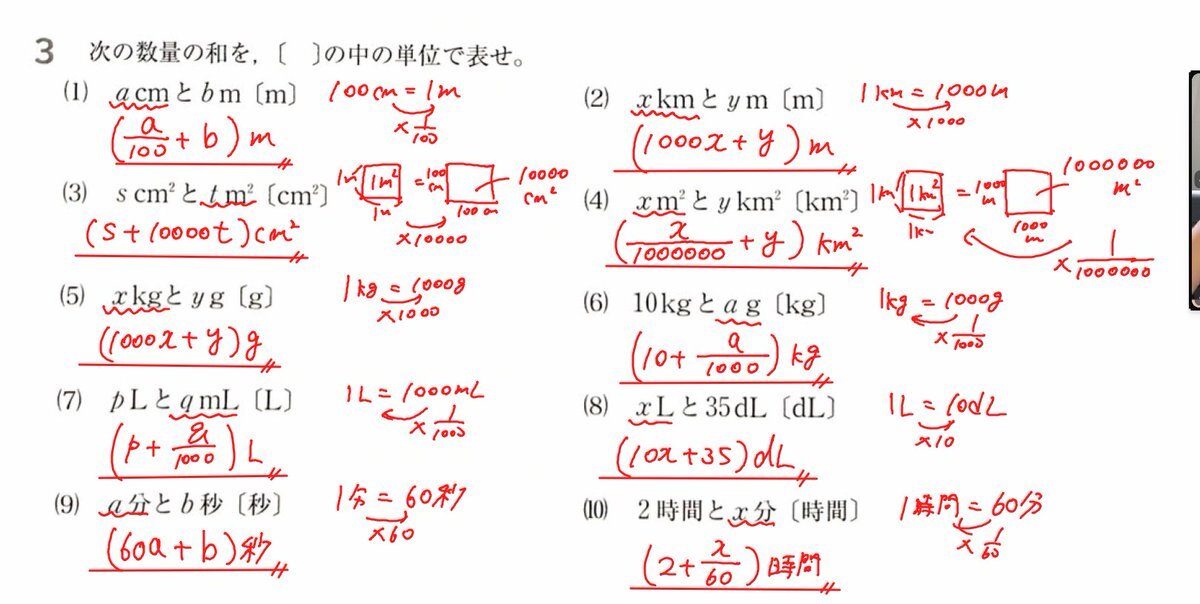 3 次の数量の和を,〔 〕の中の単位で表せ。
(1) a cm と b m〔m〕 100cm = 1m
×1/100
(a/100 + b) m
(2) x km と y m〔m〕 1km = 1000m
×1000
(1000x + y) m
(3) s cm² と t m²〔cm²〕 1m 1m² 1m = 100cm 100cm 10000cm²
×10000
(s + 10000t) cm²
(4) x m² と y km²〔km²〕 1km 1km² 1km = 1000m 1000m 1000000m²
×1/1000000
(x/1000000 + y) km²
(5) x kg と y g〔g〕 1kg = 1000g
×1000
(1000x + y) g
(6) 10 kg と a g〔kg〕 1kg = 1000g
×1/1000
(10 + a/1000) kg
(7) p L と q mL〔L〕 1L = 1000mL
×1/1000
(p + q/1000) L
(8) x L と 35 dL〔dL〕 1L = 10dL
×10
(10x + 35) dL
(9) a 分と b 秒〔秒〕 1分 = 60秒
×60
(60a + b) 秒
(10) 2 時間と x 分〔時間〕 1時間 = 60分
×1/60
(2 + x/60) 時間